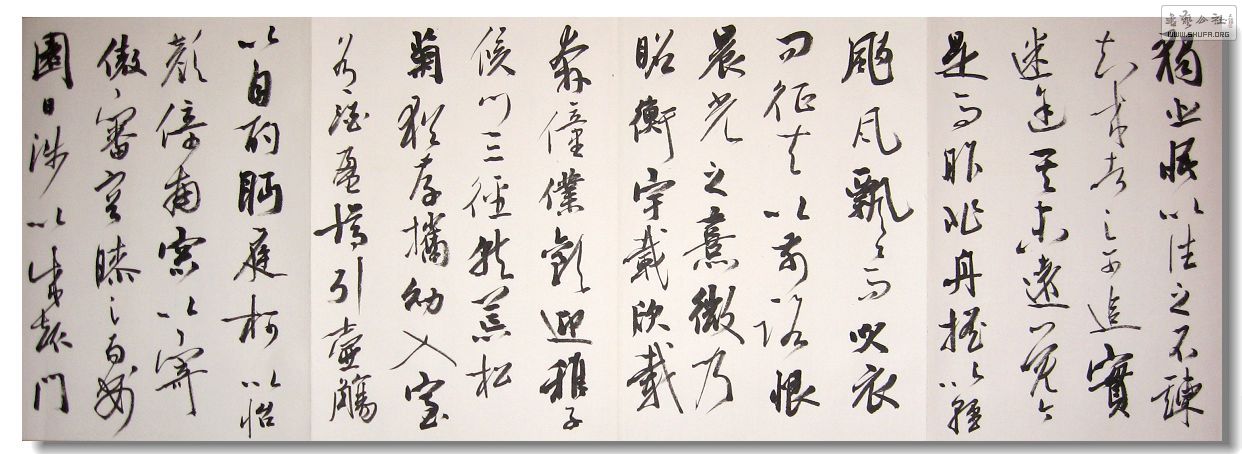 獨悲悟以往之不諫
知來者之可追實
迷途其未遠覺今
是而昨非舟搖以輕
颺風飄々而吹衣
問征夫以前路恨
晨光之熹微乃
瞻衡宇載欣載
奔僮僕歡迎稚子
候門三徑就荒松
菊猶存攜幼入室
有酒盈樽引壺觴
以自酌眄庭柯以怡
顏倚南窗以寄
傲審容膝之易安
園日涉以成趣門
書藝公社
WWW.SHUFA.ORG